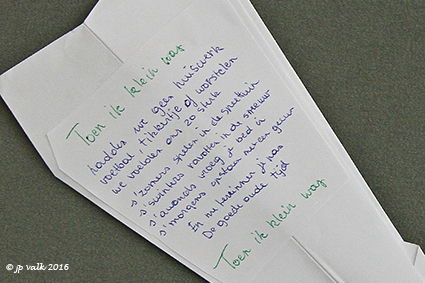 Toen ik klein was
hadden we geen huiswerk
voetbal, tikkertje of worstelen
we voetbalden
s'zomers spelen in de speeltuin
s'winters ravotten in de sneeuw
s'avonds vroeg je bed in
s'morgens opstaan met een geeuw
En nu herinner ik pas
De goede oude tijd
Toen ik klein was
© jp valk 2016